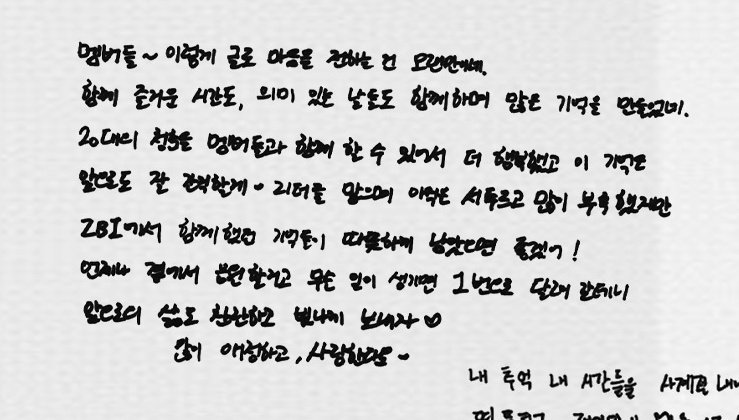 멤버들~ 이렇게 글로 마음을 전하는 건 오랜만이네.
함께 즐거운 시간도, 의미 있는 날들도 함께하며 많은 기억을 만들었네.
20대의 청춘을 멤버들과 함께 할 수 있어서 더 행복했고 이 기억은
앞으로도 잘 간직할게~ 리더를 맡으며 아직은 서투르고 많이 부족했지만
ZB1에서 함께했던 기억들이 따뜻하게 남았으면 좋겠어!
언제나 곁에서 응원할거고 무슨 일이 생기면 1번으로 달려 갈테니
앞으로의 삶도 찬란하고 빛나게 보내자♡
많이 애정하고, 사랑한다~
내 추억 내 시간들을